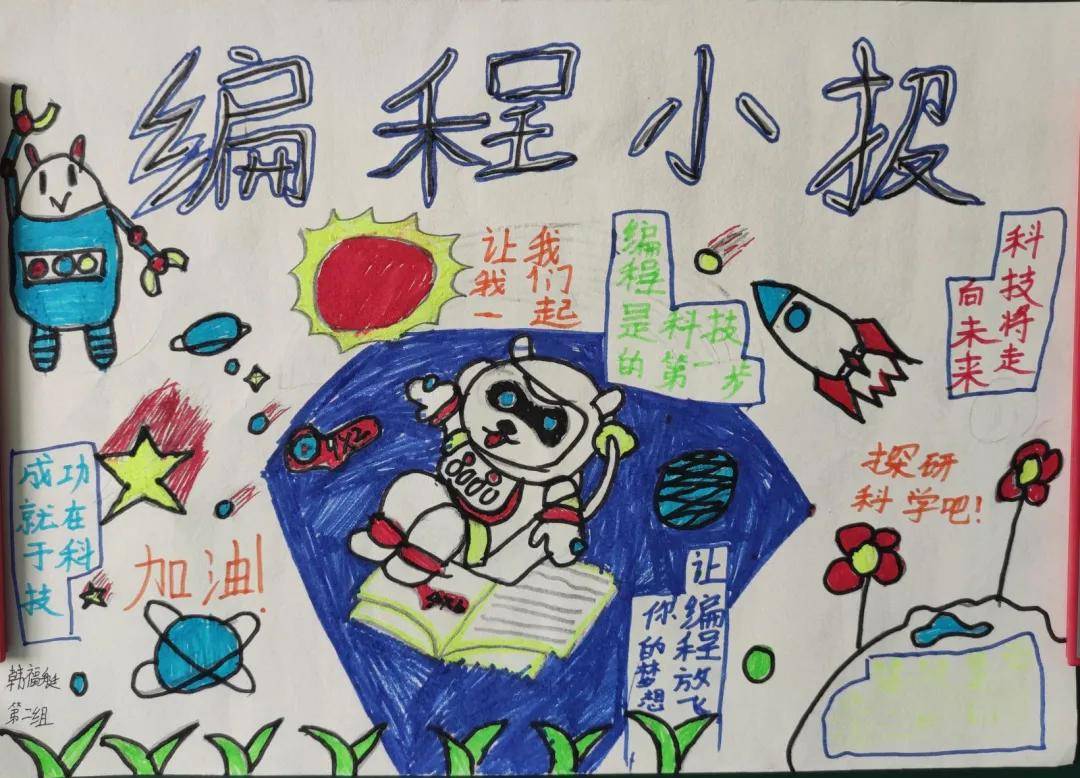 编程小报
让我
我们
一起
编
程
是科技
的第一步
科技将走
向未来
成功
就在
于科
技
加油!
探研
科学吧!
让编程放飞
你的梦想
韩福艇
第二组